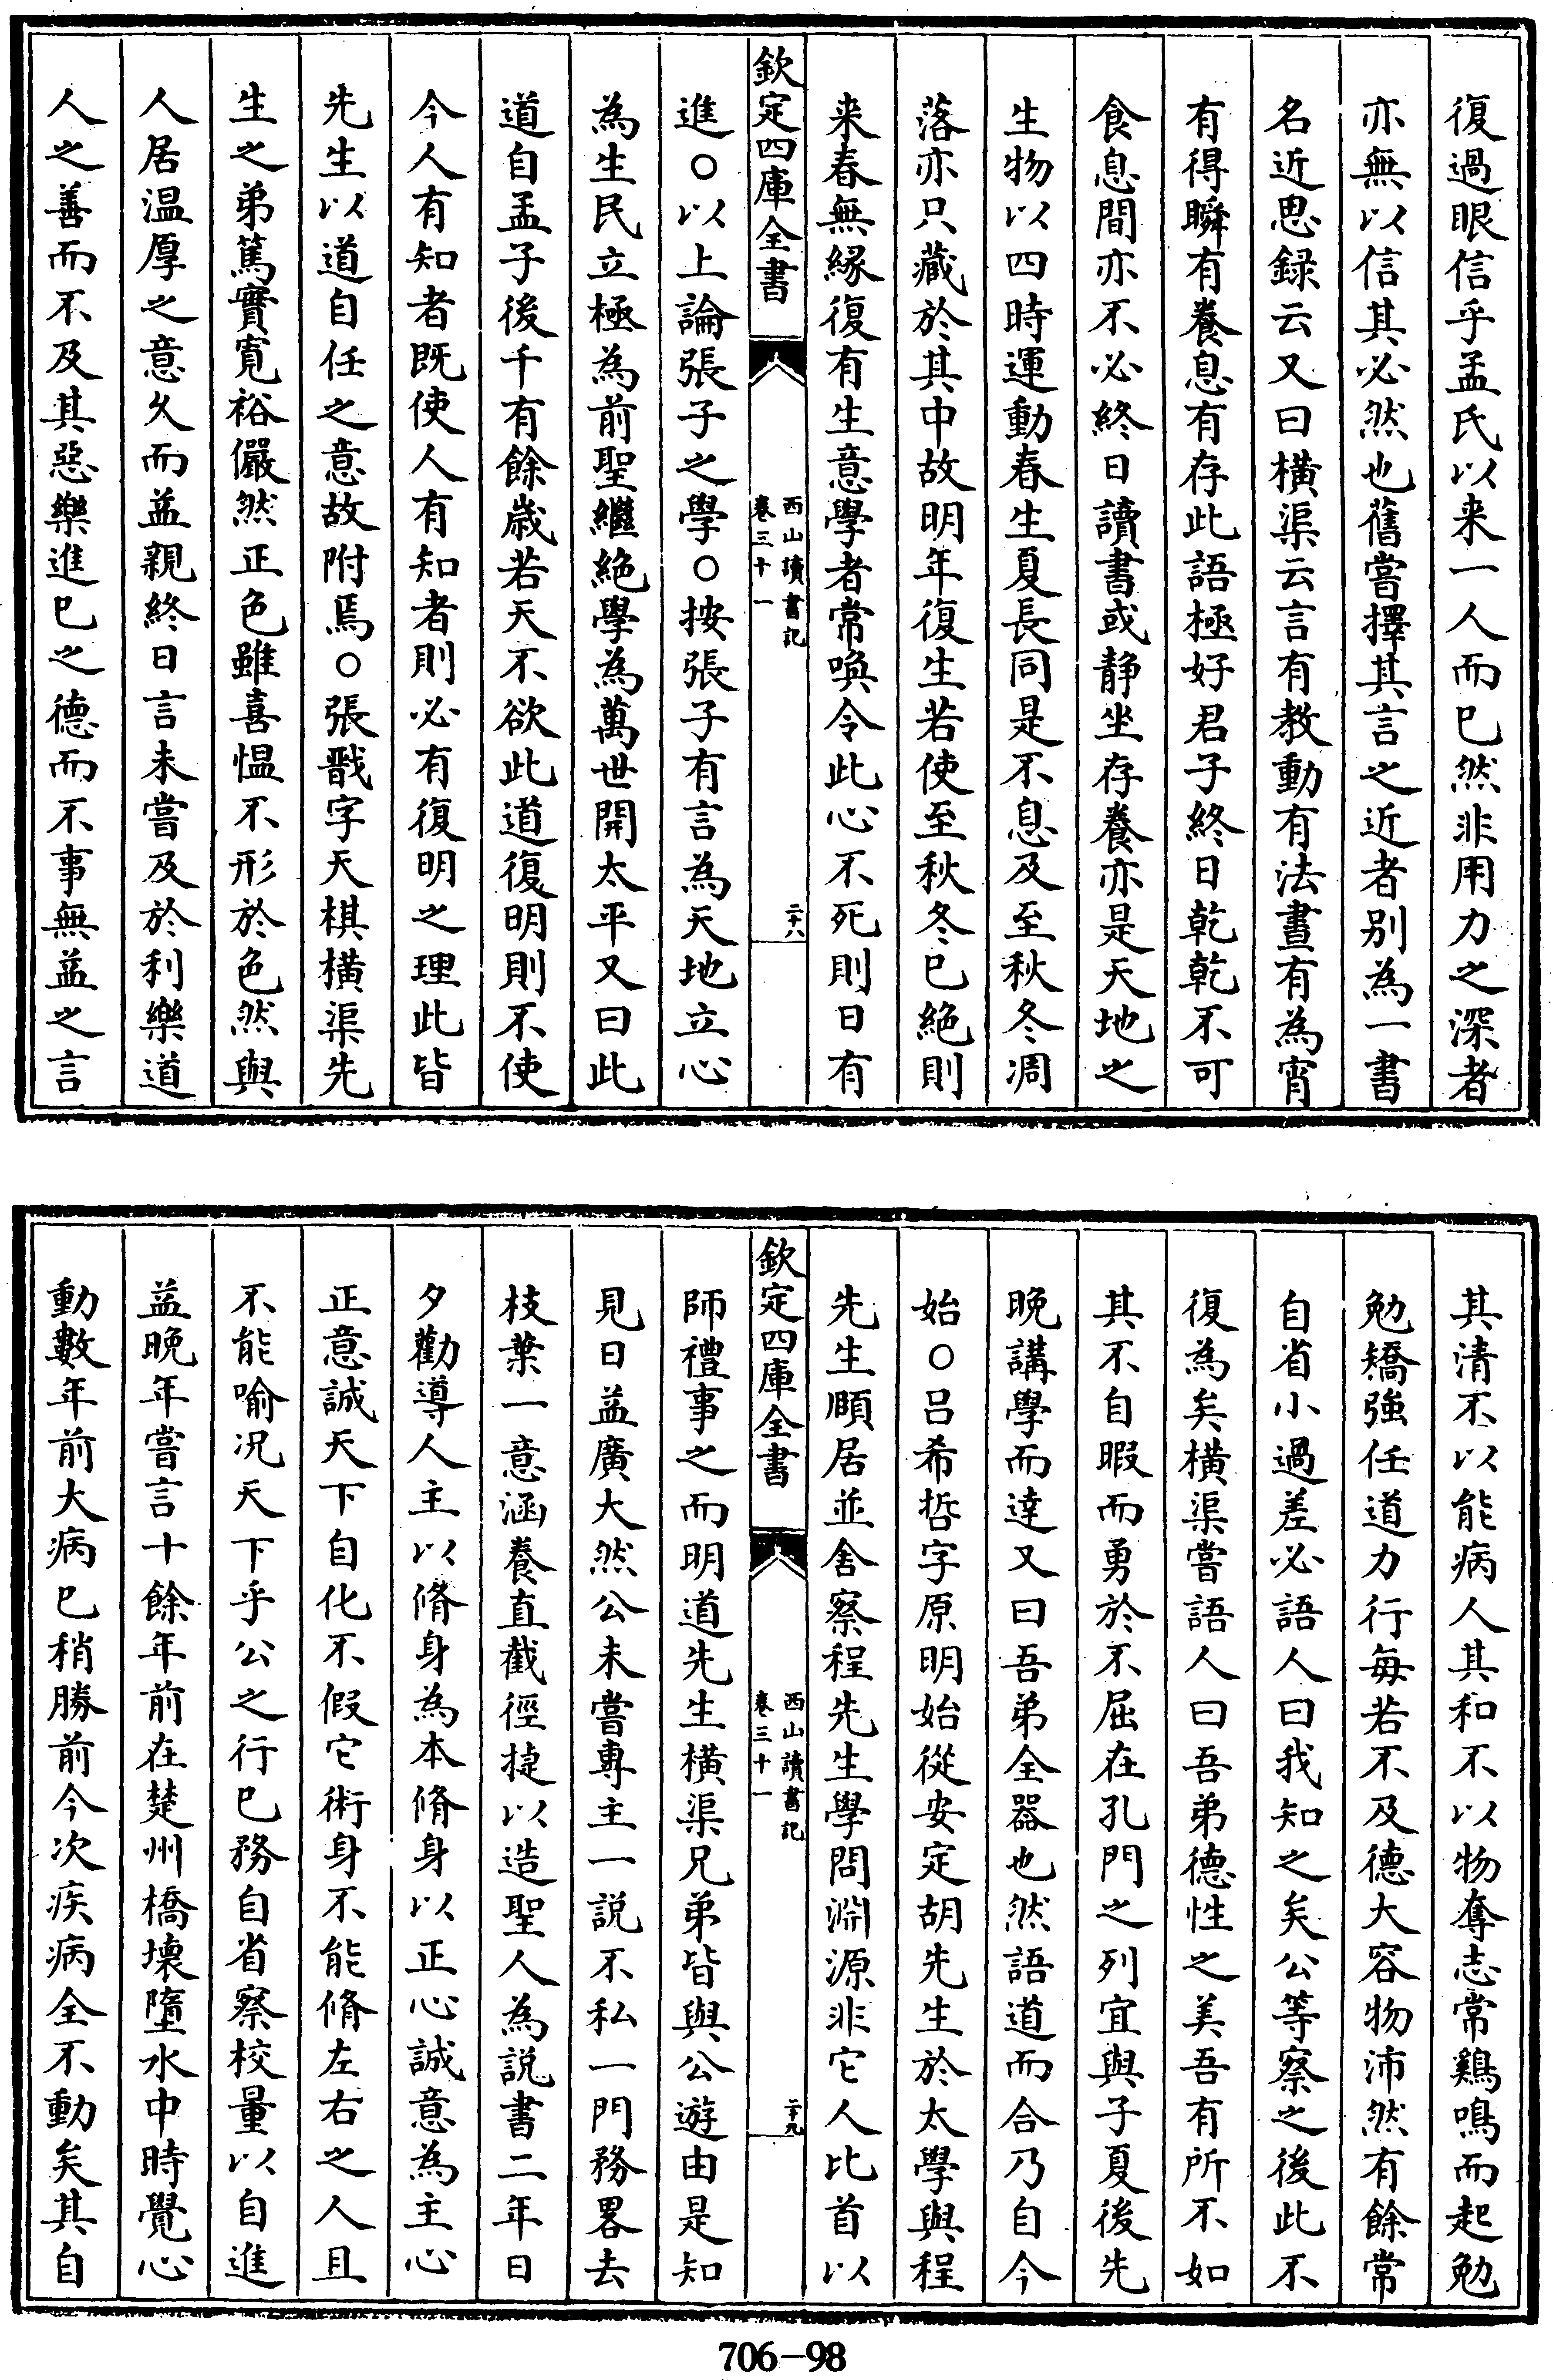 復過眼信乎孟氏以来一人而已然非用力之深者
亦無以信其必然也舊嘗擇其言之近者别為一書
名近思録云又曰横渠云言有教動有法晝有為宵
有得瞬有養息有存此語極好君子終日乾乾不可
食息間亦不必終日讀書或静坐存養亦是天地之
生物以四時運動春生夏長同是不息及至秋冬凋
落亦只藏於其中故明年復生若使至秋冬已絶則
来春無縁復有生意學者常喚令此心不死則日有
欽定四庫全書
西山讀書記
卷三十一
二十八
進○以上論張子之學○按張子有言為天地立心
為生民立極為前聖繼絶學為萬世開太平又曰此
道自孟子後千有餘歳若天不欲此道復明則不使
今人有知者既使人有知者則必有復明之理此皆
先生以道自任之意故附焉○張戩字天棋横渠先
生之弟篤實寛裕儼然正色雖喜愠不形於色然與
人居温厚之意久而益親終日言未嘗及於利樂道
人之善而不及其惡樂進已之德而不事無益之言
其清不以能病人其和不以物奪志常鷄鳴而起勉
勉矯強任道力行每若不及德大容物沛然有餘常
自省小過差必語人曰我知之矣公等察之後此不
復為矣横渠嘗語人曰吾弟德性之美吾有所不如
其不自暇而勇於不屈在孔門之列宜與子夏後先
晩講學而達又曰吾弟全器也然語道而合乃自今
始○吕希哲字原明始從安定胡先生於太學與程
先生頤居並舍察程先生學問淵源非它人比首以
欽定四庫全書
西山讀書記
卷三十一
二十九
師禮事之而明道先生横渠兄弟皆與公遊由是知
見日益廣大然公未嘗專主一說不私一門務畧去
枝葉一意涵養直截徑捷以造聖人為説書二年日
夕勸導人主以脩身為本脩身以正心誠意為主心
正意誠天下自化不假它術身不能脩左右之人且
不能喻况天下乎公之行已務自省察校量以自進
益晩年嘗言十餘年前在楚州橋壞墮水中時覺心
動數年前大病已稍勝前今次疾病全不動矣其自
706-98